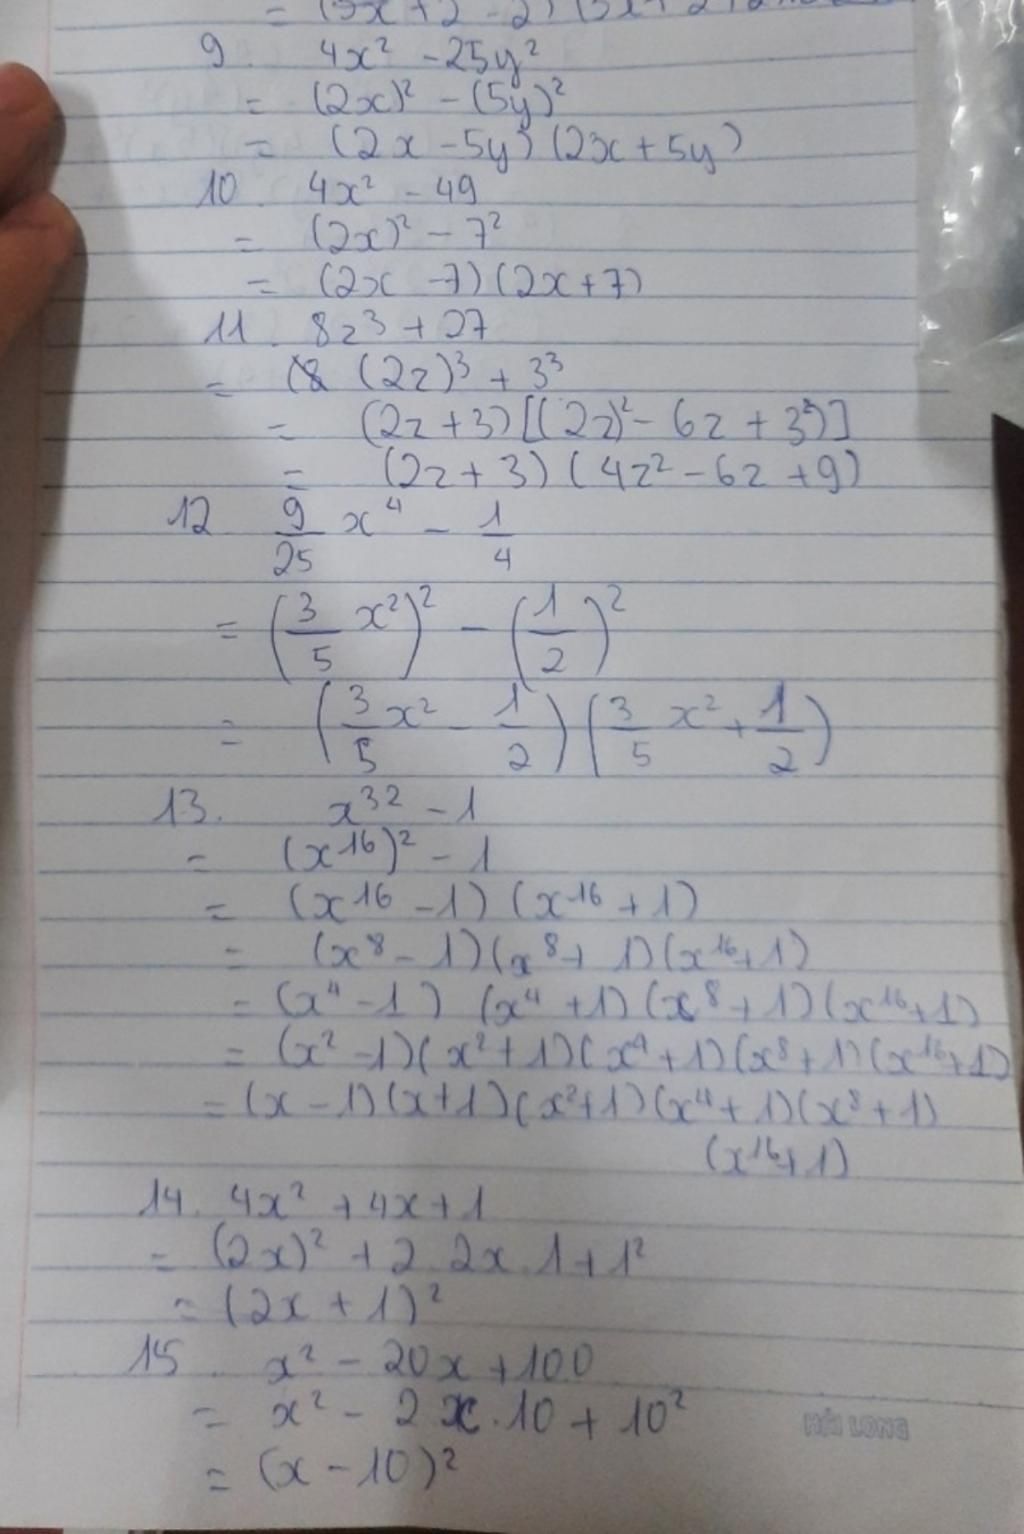 = (3x + 2 - 2) (3x + 2 + 2
9. 4x² - 25y²
= (2x)² - (5y)²
= (2x - 5y) (2x + 5y)
10. 4x² - 49
= (2x)² - 7²
= (2x - 7) (2x + 7)
11. 8z³ + 27
= (2z)³ + 3³
= (2z + 3) [(2z)² - 6z + 3²)]
= (2z + 3) (4z² - 6z + 9)
12 9/25 x⁴ - 1/4
= (3/5 x²)² - (1/2)²
= (3/5 x² - 1/2) (3/5 x² + 1/2)
13. x³² - 1
= (x¹⁶)² - 1
= (x¹⁶ - 1) (x¹⁶ + 1)
= (x⁸ - 1) (x⁸ + 1) (x¹⁶ + 1)
= (x⁴ - 1) (x⁴ + 1) (x⁸ + 1) (x¹⁶ + 1)
= (x² - 1) (x² + 1) (x⁴ + 1) (x⁸ + 1) (x¹⁶ + 1)
= (x - 1) (x + 1) (x² + 1) (x⁴ + 1) (x⁸ + 1)
(x¹⁶ + 1)
14. 4x² + 4x + 1
= (2x)² + 2.2x.1 + 1²
= (2x + 1)²
15. x² - 20x + 100
= x² - 2x.10 + 10²
HẢI LONG
= (x - 10)²